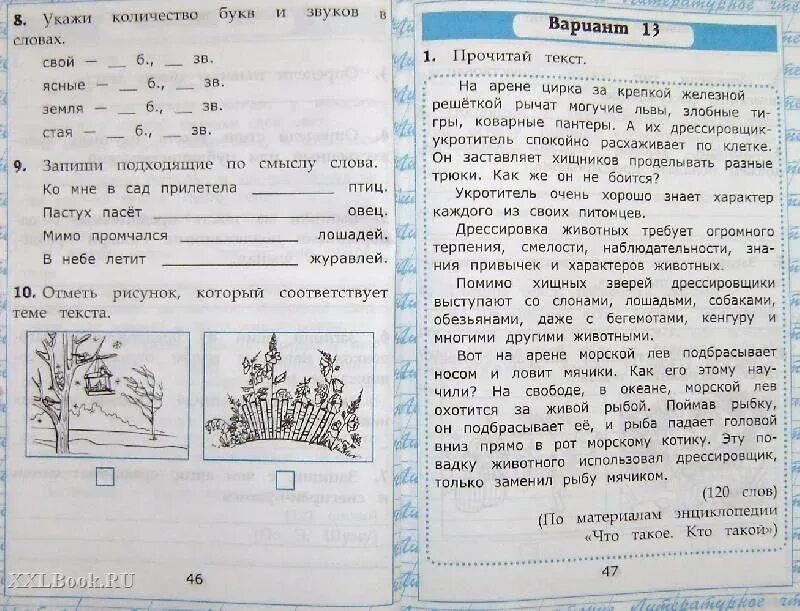 8. Укажи количество букв и звуков в
словах.
свой — __ б., __ зв.
ясные — __ б., __ зв.
земля — __ б., __ зв.
стая — __ б., __ зв.
9. Запиши подходящие по смыслу слова.
Ко мне в сад прилетела ________ птиц.
Пастух пасёт ________ овец.
Мимо промчался ________ лошадей.
В небе летит ________ журавлей.
10. Отметь рисунок, который соответствует
теме текста.
46
XXLBook.RU
Вариант 13
1. Прочитай текст.
На арене цирка за крепкой железной
решёткой рычат могучие львы, злобные ти-
гры, коварные пантеры. А их дрессировщик-
укротитель спокойно расхаживает по клетке.
Он заставляет хищников проделывать разные
трюки. Как же он не боится?
Укротитель очень хорошо знает характер
каждого из своих питомцев.
Дрессировка животных требует огромного
терпения, смелости, наблюдательности, зна-
ния привычек и характеров животных.
Помимо хищных зверей дрессировщики
выступают со слонами, лошадьми, собаками,
обезьянами, даже с бегемотами, кенгуру и
многими другими животными.
Вот на арене морской лев подбрасывает
носом и ловит мячики. Как его этому нау-
чили? На свободе, в океане, морской лев
охотится за живой рыбой. Поймав рыбку,
он подбрасывает её, и рыба падает головой
вниз прямо в рот морскому котику. Эту по-
вадку животного использовал дрессировщик,
только заменил рыбу мячиком.
(120 слов)
(По материалам энциклопедии
«Что такое. Кто такой»)
47